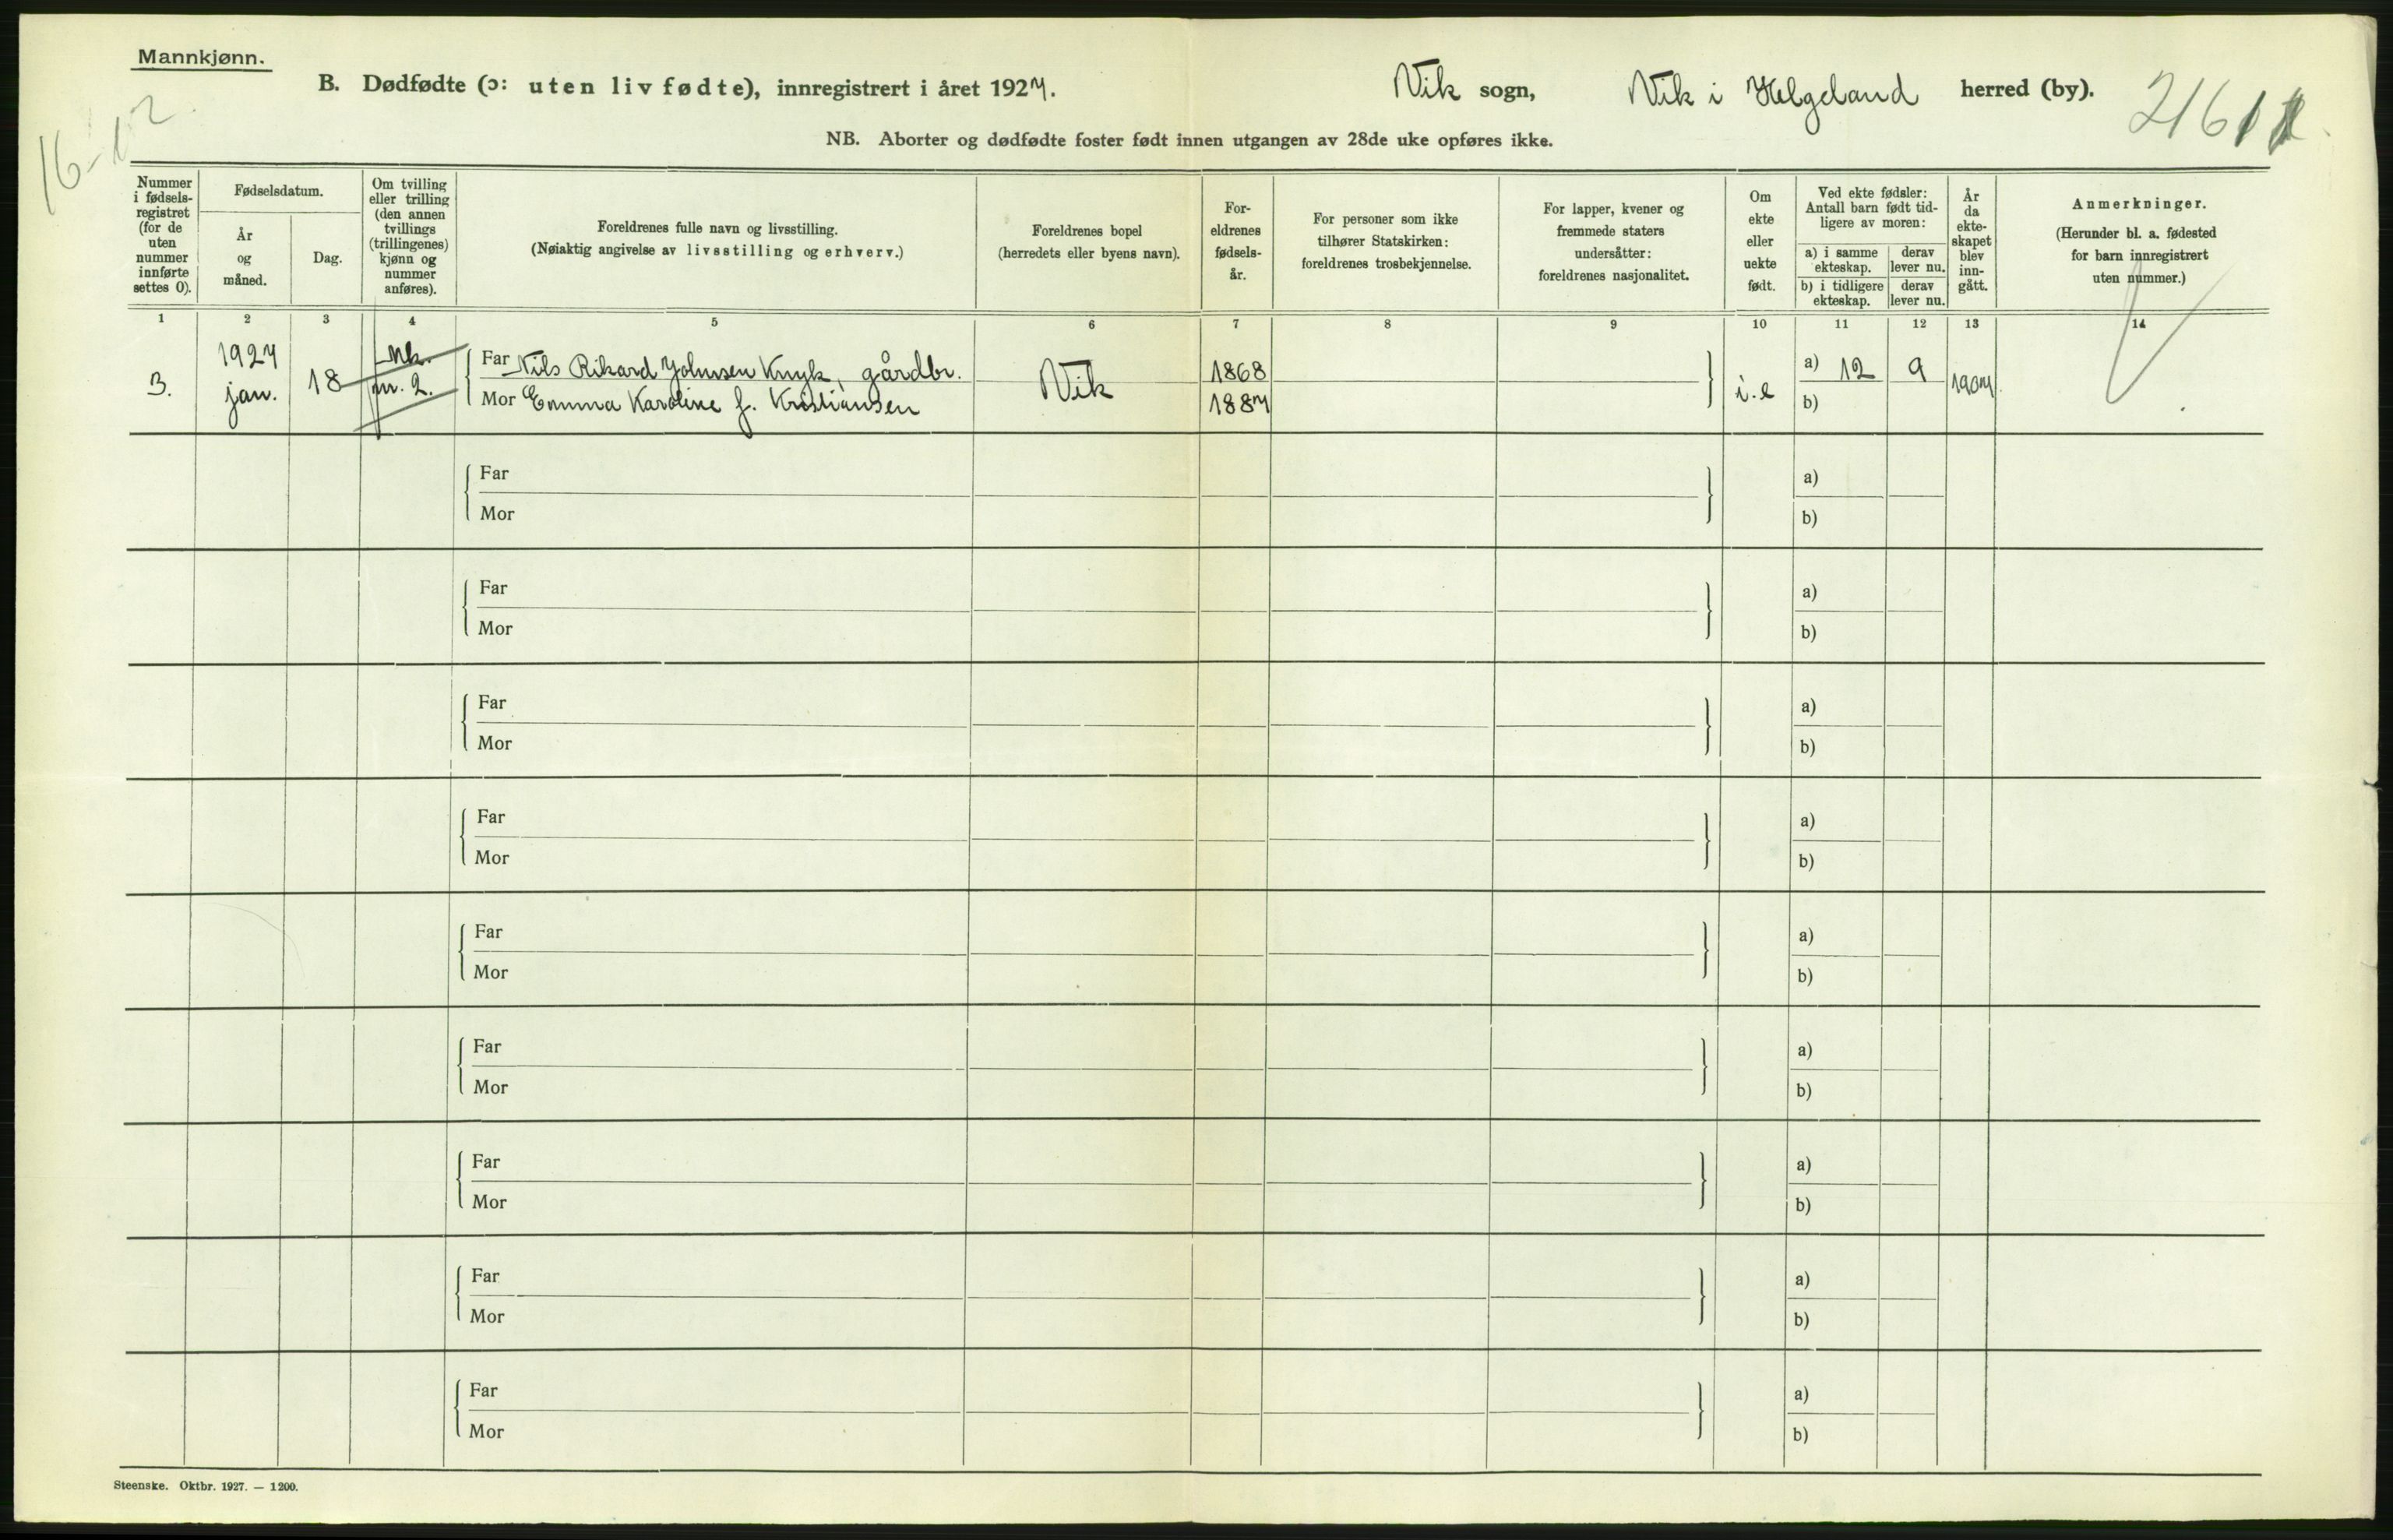 Mannkjønn.
B. Dødfødte (ɔ: uten liv fødte), innregistrert i året 1927. Vik sogn, Vik i Helgeland herred (by).
16-12.
NB. Aborter og dødfødte foster født innen utgangen av 28de uke opføres ikke.
Nummer i fødsels-registret (for de uten nummer innførte settes 0).
Fødselsdatum.
År og måned.
Dag.
Om tvilling eller trilling (den annen tvillings (trillingenes) kjønn og nummer anføres).
Foreldrenes fulle navn og livsstilling.
(Nøiaktig angivelse av livsstilling og erhverv.)
Foreldrenes bopel
(herredets eller byens navn).
For-eldrenes fødsels-år.
For personer som ikke tilhører Statskirken: foreldrenes trosbekjennelse.
For lapper, kvener og fremmede staters undersåtter: foreldrenes nasjonalitet.
Om ekte eller uekte født.
Ved ekte fødsler: Antall barn født tid-ligere av moren:
a) i samme ekteskap.
derav lever nu.
b) i tidligere ekteskap.
derav lever nu.
År da ekte-skapet blev inn-gått.
Anmerkninger.
(Herunder bl. a. fødested for barn innregistrert uten nummer.)
1 2 3 4 5 6 7 8 9 10 11 12 13 14
3. 1927 jan. 18 mk. nr. 2.
Far Nils Rikard Johnsen Knyk, gårdbr. Vik 1868 i.e a) 12 9 1907
Mor Emma Karoline f. Kristiansen 1887 b)
Far a)
Mor b)
Far a)
Mor b)
Far a)
Mor b)
Far a)
Mor b)
Far a)
Mor b)
Far a)
Mor b)
Far a)
Mor b)
Far a)
Mor b)
Far a)
Mor b)
Steenske. Oktbr. 1927. — 1200.